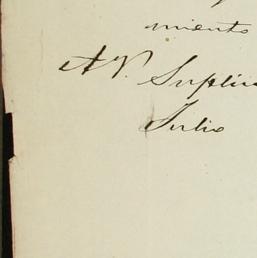 miento
A V. Suplic
Julio